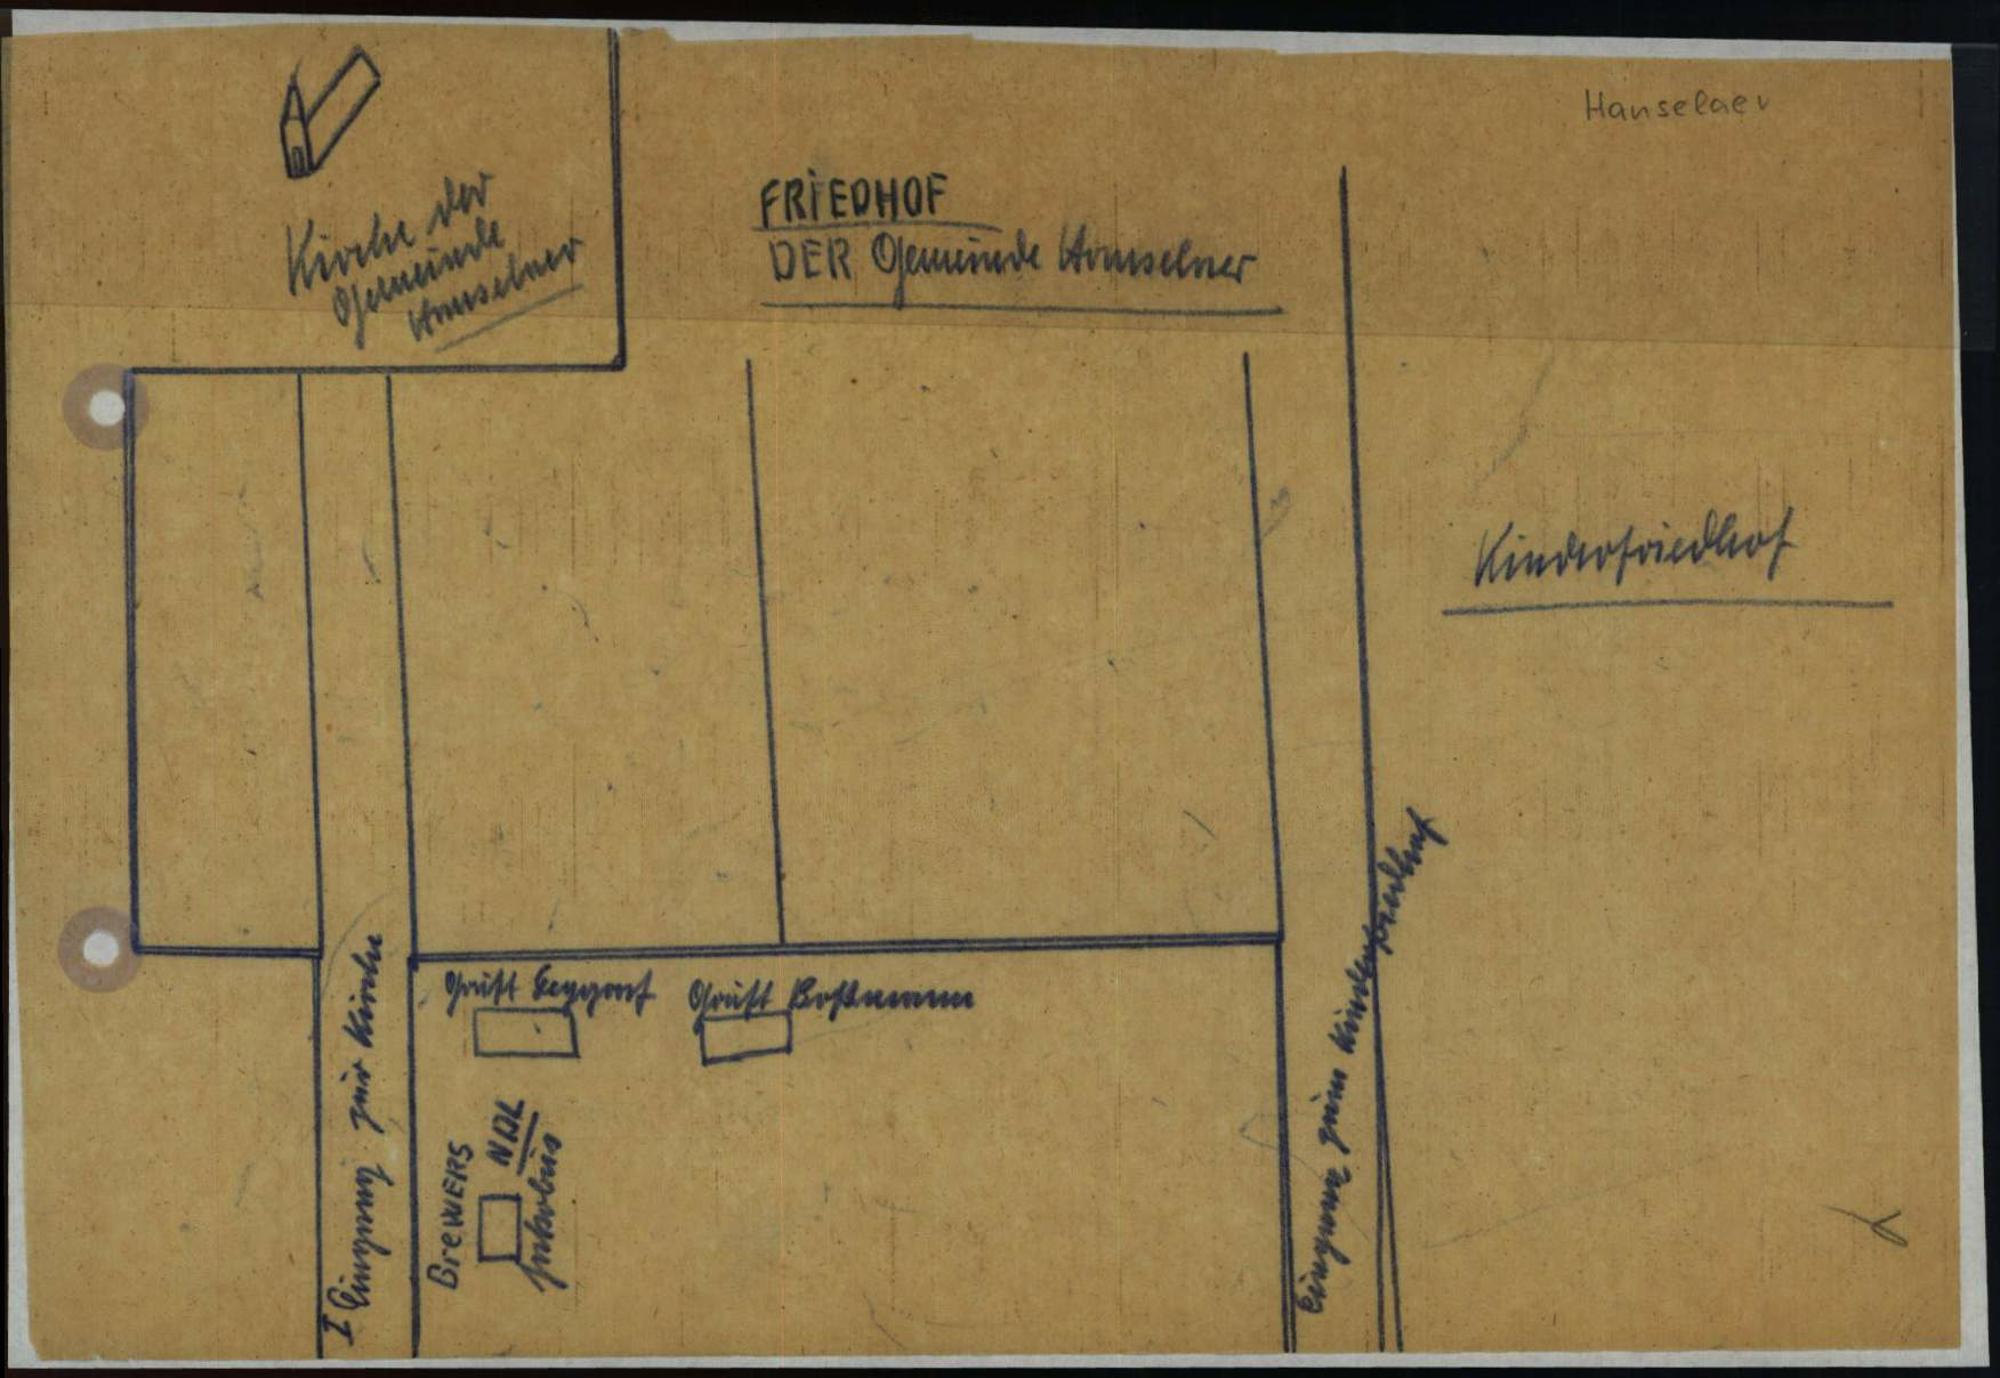 Hanselaer
Kirche der
Gemeinde
Hanselaer
FRIEDHOF
DER Gemeinde Hanselaer
Kinderfriedhof
I Eingang zur Kirche
Gruft
Gruft Boßmann
BreWERS
NDL
Jakobus
Eingang zum Kinderfriedhof